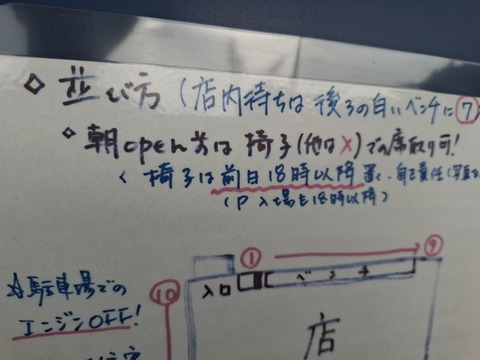 ◇ 並び方 (店内待ちは後ろの白いベンチに⑦
◇ 朝open前は椅子(他は×)での席取り可!
< 椅子は前日18時以降置く、自己責任(写真
(P入場も18時以降)
① ⑨
入口 ベンチ
☆駐車場での ⑩
エンジンOFF!
店